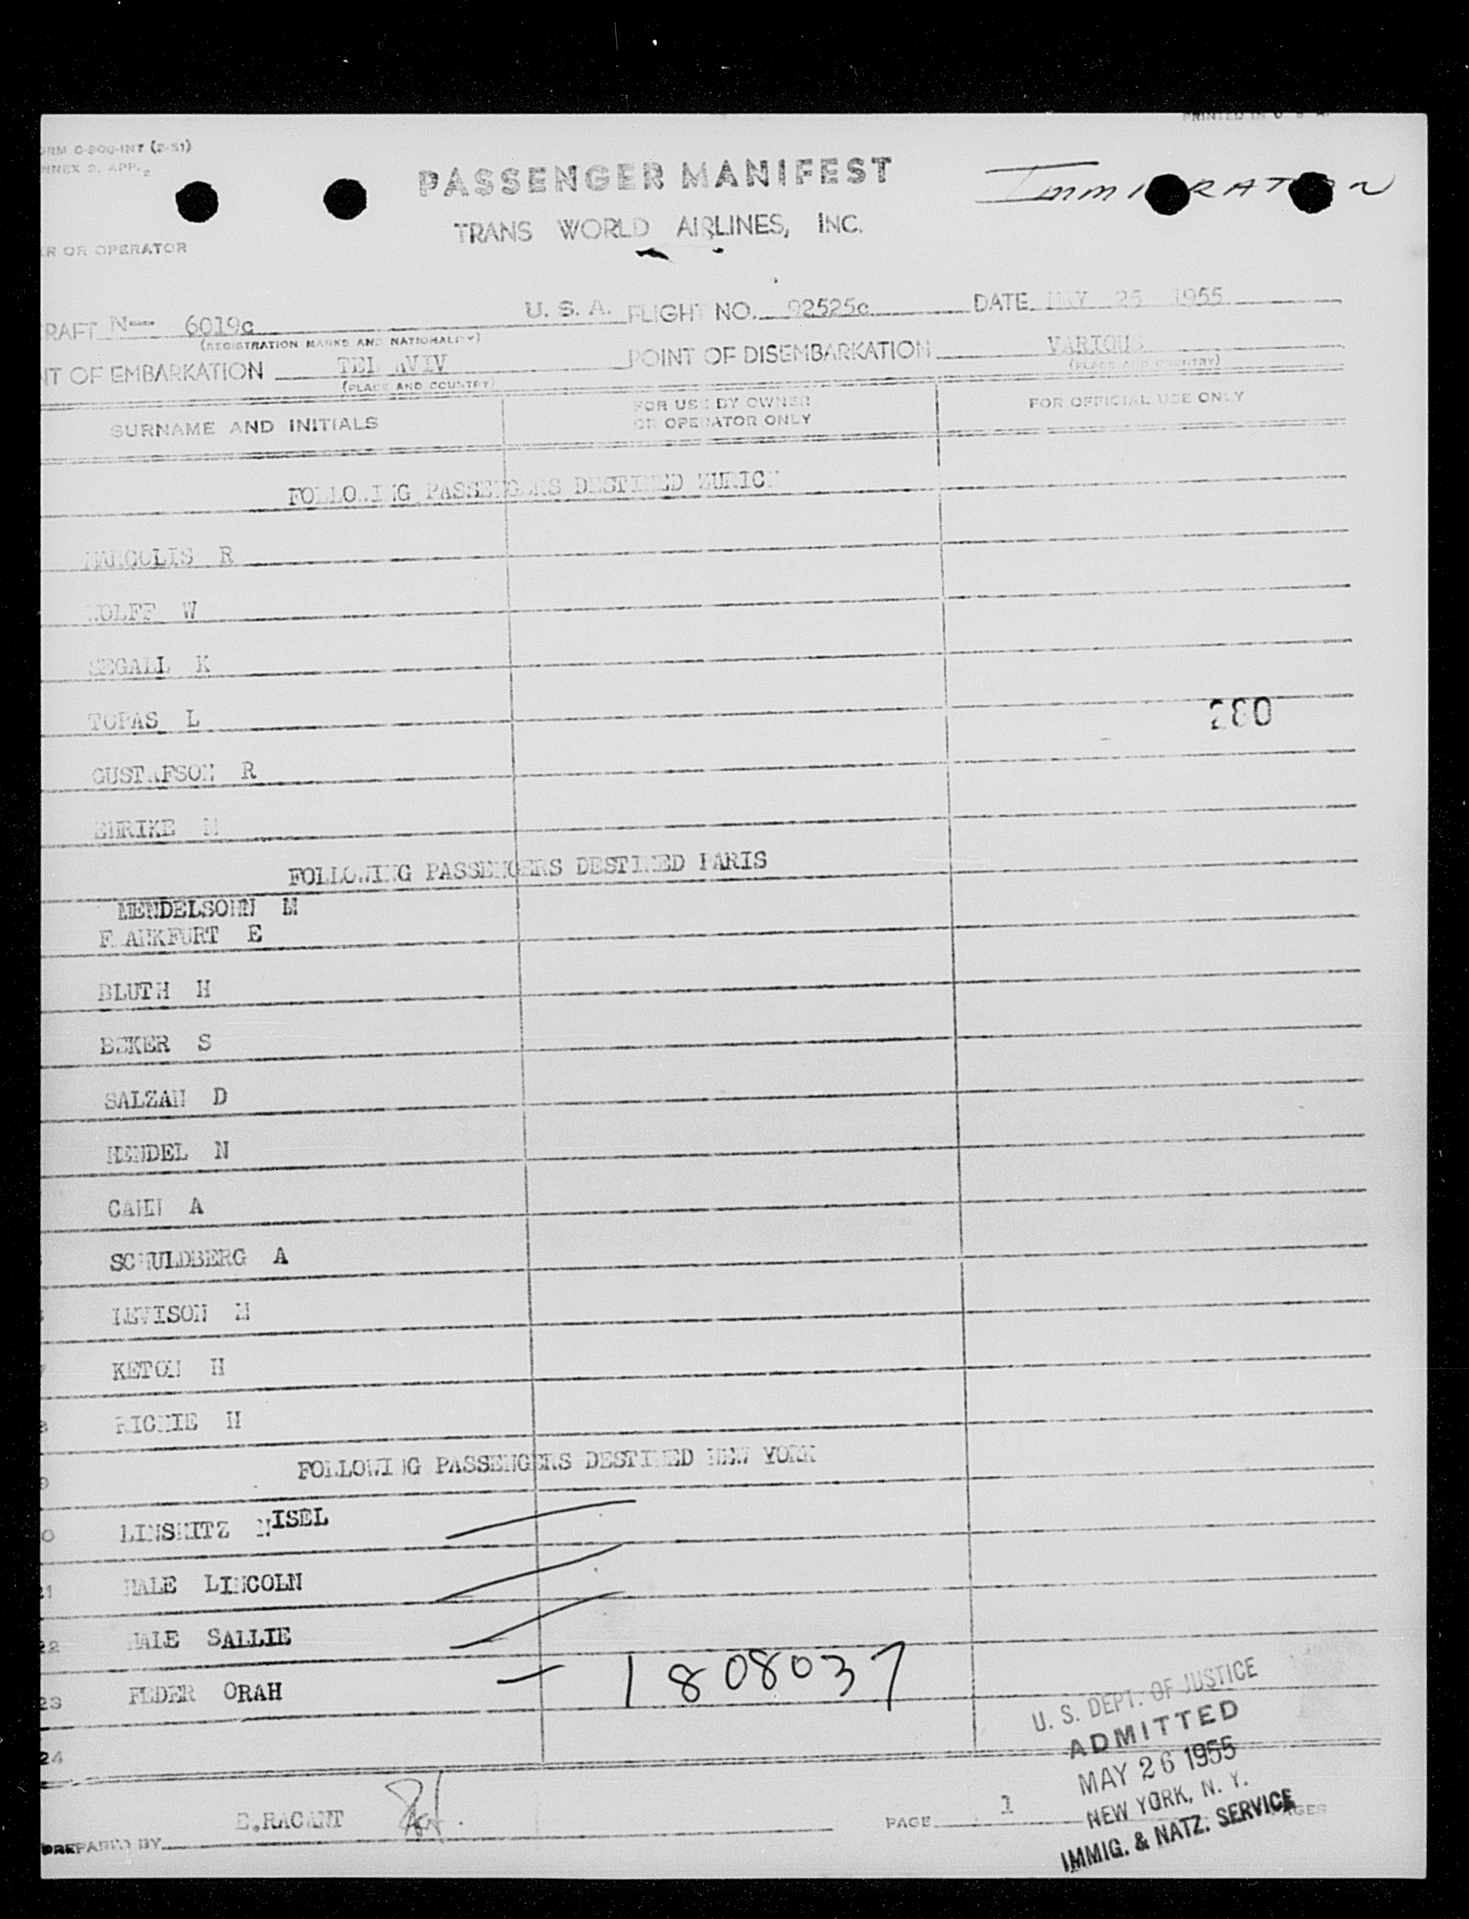 PRINTED IN U. S. A.
ORM O-200-INT (2-51)
NNEX 9, APP. 2
PASSENGER MANIFEST
IMMIGRATION
TRANS WORLD AIRLINES, INC.
ER OR OPERATOR
RAFT N-- 6019c U. S. A. FLIGHT NO. 92525c DATE MAY 25 1955
(REGISTRATION MARKS AND NATIONALITY)
NT OF EMBARKATION TEL AVIV POINT OF DISEMBARKATION VARIOUS
(PLACE AND COUNTRY) (PLACE AND COUNTRY)
SURNAME AND INITIALS FOR USE BY OWNER OR OPERATOR ONLY FOR OFFICIAL USE ONLY
FOLLOWING PASSENGERS DESTINED ZURICH
MARGOLIS R
WOLFF W
SEGALL K
TOPAS L
280
GUSTAFSON R
EHRIKE M
FOLLOWING PASSENGERS DESTINED PARIS
MENDELSOHN M
FRANKFURT E
BLUTH H
BEKER S
SALZAN D
HENDEL N
CAHN A
SCHULDBERG A
LEVISON M
KETON H
8 RICHIE H
9 FOLLOWING PASSENGERS DESTINED NEW YORK
0 LINSHITZ NISEL
21 HALE LINCOLN
22 HALE SALLIE
23 FEDER ORAH — 1808037
24
U. S. DEPT. OF JUSTICE
ADMITTED
MAY 26 1955
NEW YORK, N. Y.
IMMIG. & NATZ. SERVICE
PREPARED BY E.RACANT PAGE 1 GES